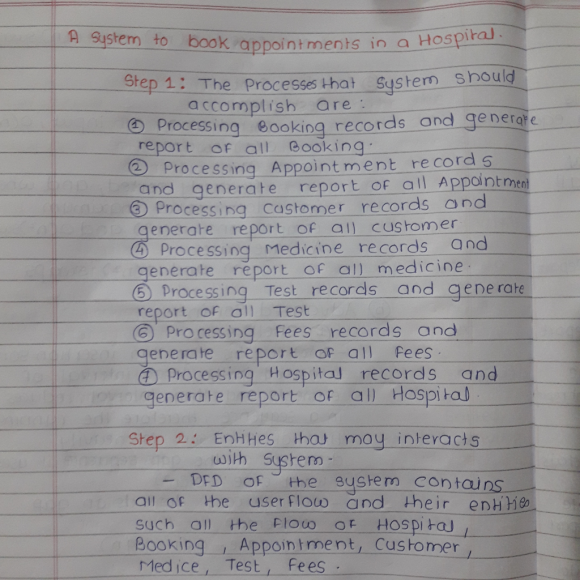 A System to book appointments in a Hospital.
Step 1: The Processes that System should
accomplish are :
① Processing Booking records and generate
report of all Booking.
② Processing Appointment records
and generate report of all Appointment
③ Processing Customer records and
generate report of all customer
④ Processing Medicine records and
generate report of all medicine.
⑤ Processing Test records and generate
report of all Test
⑥ Processing Fees records and
generate report of all Fees.
⑦ Processing Hospital records and
generate report of all Hospital.
Step 2: Entities that may interacts
with System.
- DFD OF the system contains
all of the userflow and their entities
such all the flow of Hospital,
Booking, Appointment, Customer,
Medice, Test, Fees.